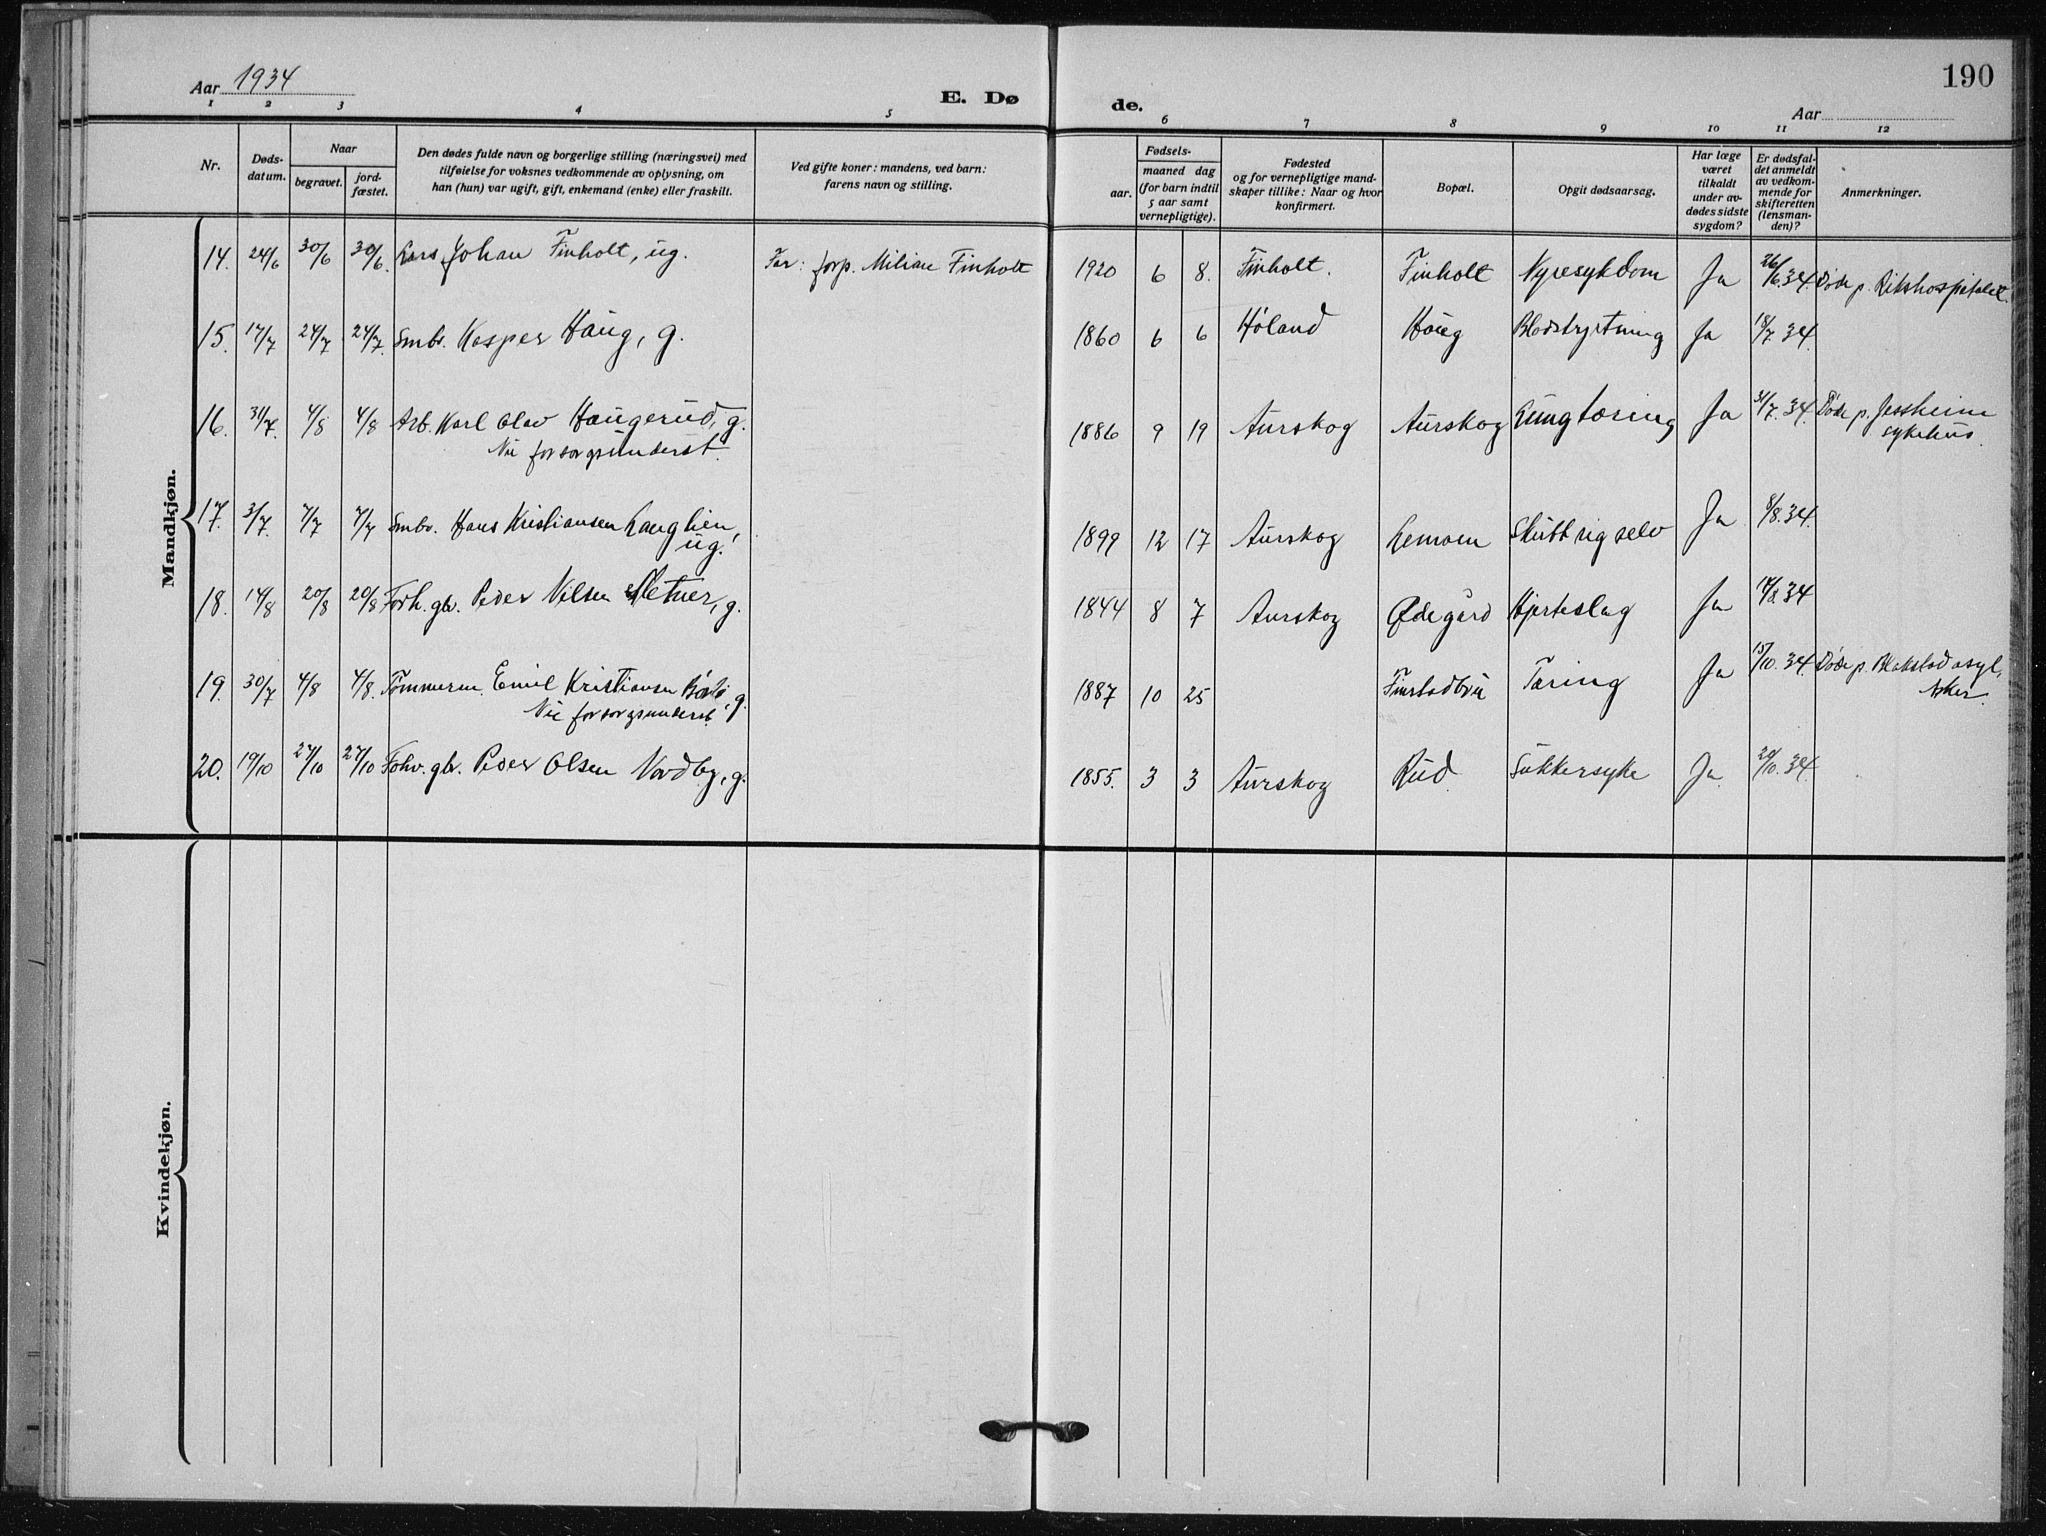 Aar 1934
E. Døde.
Aar
190
1 2 3 4 5 6 7 8 9 10 11 12
Nr.
Døds-
datum.
Naar
begravet.
jord-
fæstet.
Den dødes fulde navn og borgerlige stilling (næringsvei) med
tilføielse for voksnes vedkommende av oplysning, om
han (hun) var ugift, gift, enkemand (enke) eller fraskilt.
Ved gifte koner: mandens, ved barn:
farens navn og stilling.
Fødsels-
aar.
maaned dag
(for barn indtil
5 aar samt
vernepligtige).
Fødested
og for vernepligtige mand-
skaper tillike: Naar og hvor
konfirmert.
Bopæl.
Opgit dødsaarsag.
Har læge
været
tilkaldt
under av-
dødes sidste
sygdom?
Er dødsfal-
det anmeldt
av vedkom-
mende for
skifteretten
(lensman-
den)?
Anmerkninger.
Mandkjøn.
14. 24/6 30/6 30/6. Lars Johan Finholt, ug. Far: forp. Milian Finholt 1920 6 8. Finholt. Finholt Nyresykdom Ja 26/6.34. Døde p. Rikshospitalet.
15. 17/7 24/7 24/7. Smbr. Kasper Haug, g. 1860 6 6 Høland Haug Blodstyrtning Ja 18/7.34.
16. 31/7. 4/8 4/8 Arb. Karl Olav Haugerud, g. 1886 9 19 Aurskog Aurskog Lungtæring Ja 31/7.34. Døde p. Jessheim
Nu forsorgsunderst. sykehus.
17. 3/7. 7/7 7/7 Smbr. Hans Kristiansen Langlien, 1899 12 17 Aurskog Lemoen Skutt sig selv Ja 8/8.34.
ug.
18. 14/8 20/8 20/8 Forh. gbr. Peder Nilsen Sletner, g. 1844 8 7 Aurskog Ødegård Hjerteslag Ja 17/8.34
19. 30/7 4/8 4/8. Tømmerm. Emil Kristiansen g. 1887 10 25 Finstadbru Tæring Ja 15/10.34. Døde p. Blakstad asyl,
Nu forsorgsunderst. Asker.
20. 19/10 27/10 27/10 Fohv. gbr. Peder Olsen Nordby, g. 1855. 3 3 Aurskog Rud Sukkersyke Ja. 20/10.34.
Kvindekjøn.